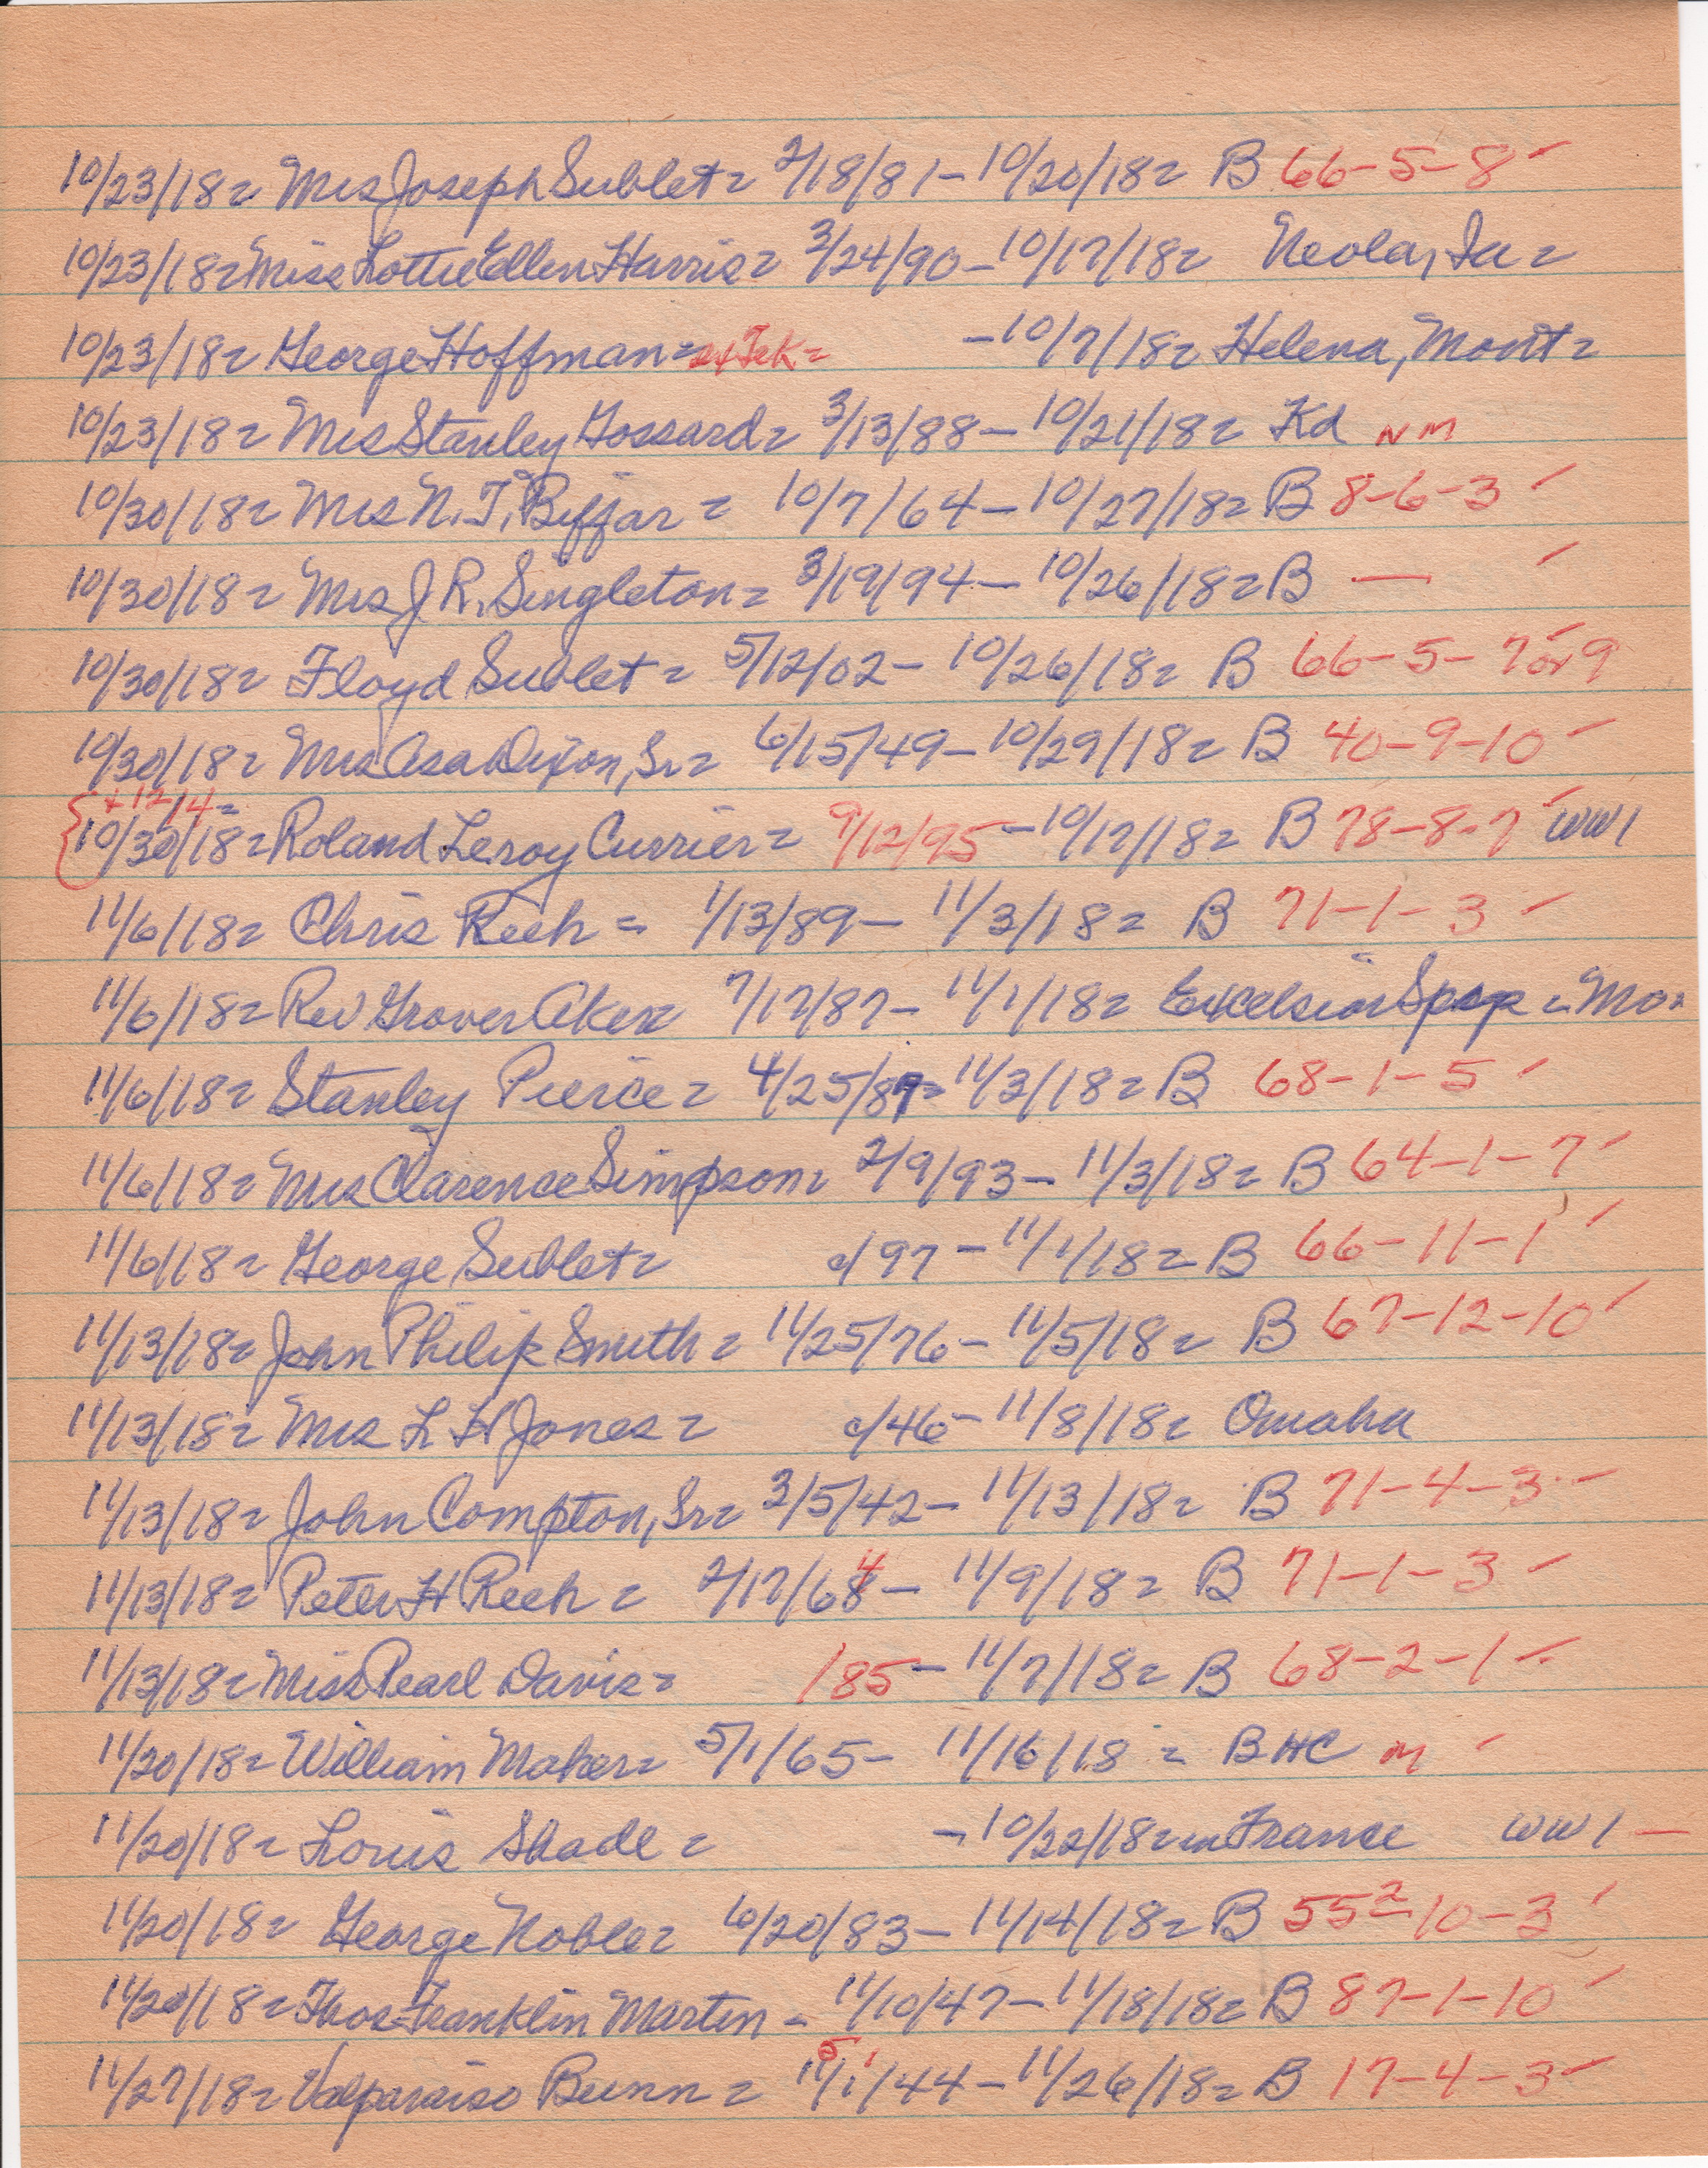 10/23/18= Mrs Joseph Sublet= 2/18/81- 10/20/18= B 66-5-8 ✓
10/23/18= Miss Lottie Ellen Harris= 3/24/90-10/17/18= Neola, Ia=
10/23/18= George Hoffman= -10/7/18= Helena, Mont=
10/23/18= Mrs Stanley Gossard= 3/13/88-10/21/18= Kd NM
10/30/18= Mrs N. T. Biffar= 10/7/64-10/27/18= B 8-6-3 ✓
10/30/18= Mrs J R. Singleton= 3/19/94-10/26/18= B — ✓
10/30/18= Floyd Sublet= 5/12/02- 10/26/18= B 66-5-7 or 9 ✓
10/30/18= Mrs Asa Dixon, Sr= 6/15/49-10/29/18= B 40-9-10 ✓
+ 12/4=
10/30/18= Roland Leroy Currier= 9/12/95-10/17/18= B 78-8-7 ✓ WW1
11/6/18= Chris Reeh= 1/13/89- 11/3/18= B 71-1-3 ✓
11/6/18= Rev Grover Aker 7/17/87- 11/1/18= Excelsior Spgs= Mo=
11/6/18= Stanley Pierce= 4/25/89= 11/3/18= B 68-1-5 ✓
11/6/18= Mrs Clarence Simpson= 2/9/93- 11/3/18= B 64-1-7 ✓
11/6/18= George Sublet= c/97-11/1/18= B 66-11-1 ✓
11/13/18= John Philip Smith= 11/25/76- 11/5/18= B 67-12-10 ✓
11/13/18= Mrs L H Jones= c/46-11/8/18= Omaha
11/13/18= John Compton, Sr= 3/5/42- 11/13/18= B 71-4-3 ✓
11/13/18= Peter H Reeh= 2/17/68 4- 11/9/18= B 71-1-3 ✓
11/13/18= Miss Pearl Davis= /85-11/7/18= B 68-2-1 ✓
11/20/18= William Maher= 5/1/65- 11/16/18= BHC M ✓
11/20/18= Louis Shade= -10/22/18= in France WW1 —
11/20/18= George Noble= 6/20/83- 11/14/18= B 55²-10-3 ✓
11/20/18= Thos Franklin Martin= 11/10/47-11/18/18= B 87-1-10 ✓
5
11/27/18= Valparaiso Bunn= 11/1/44-11/26/18= B 17-4-3 ✓